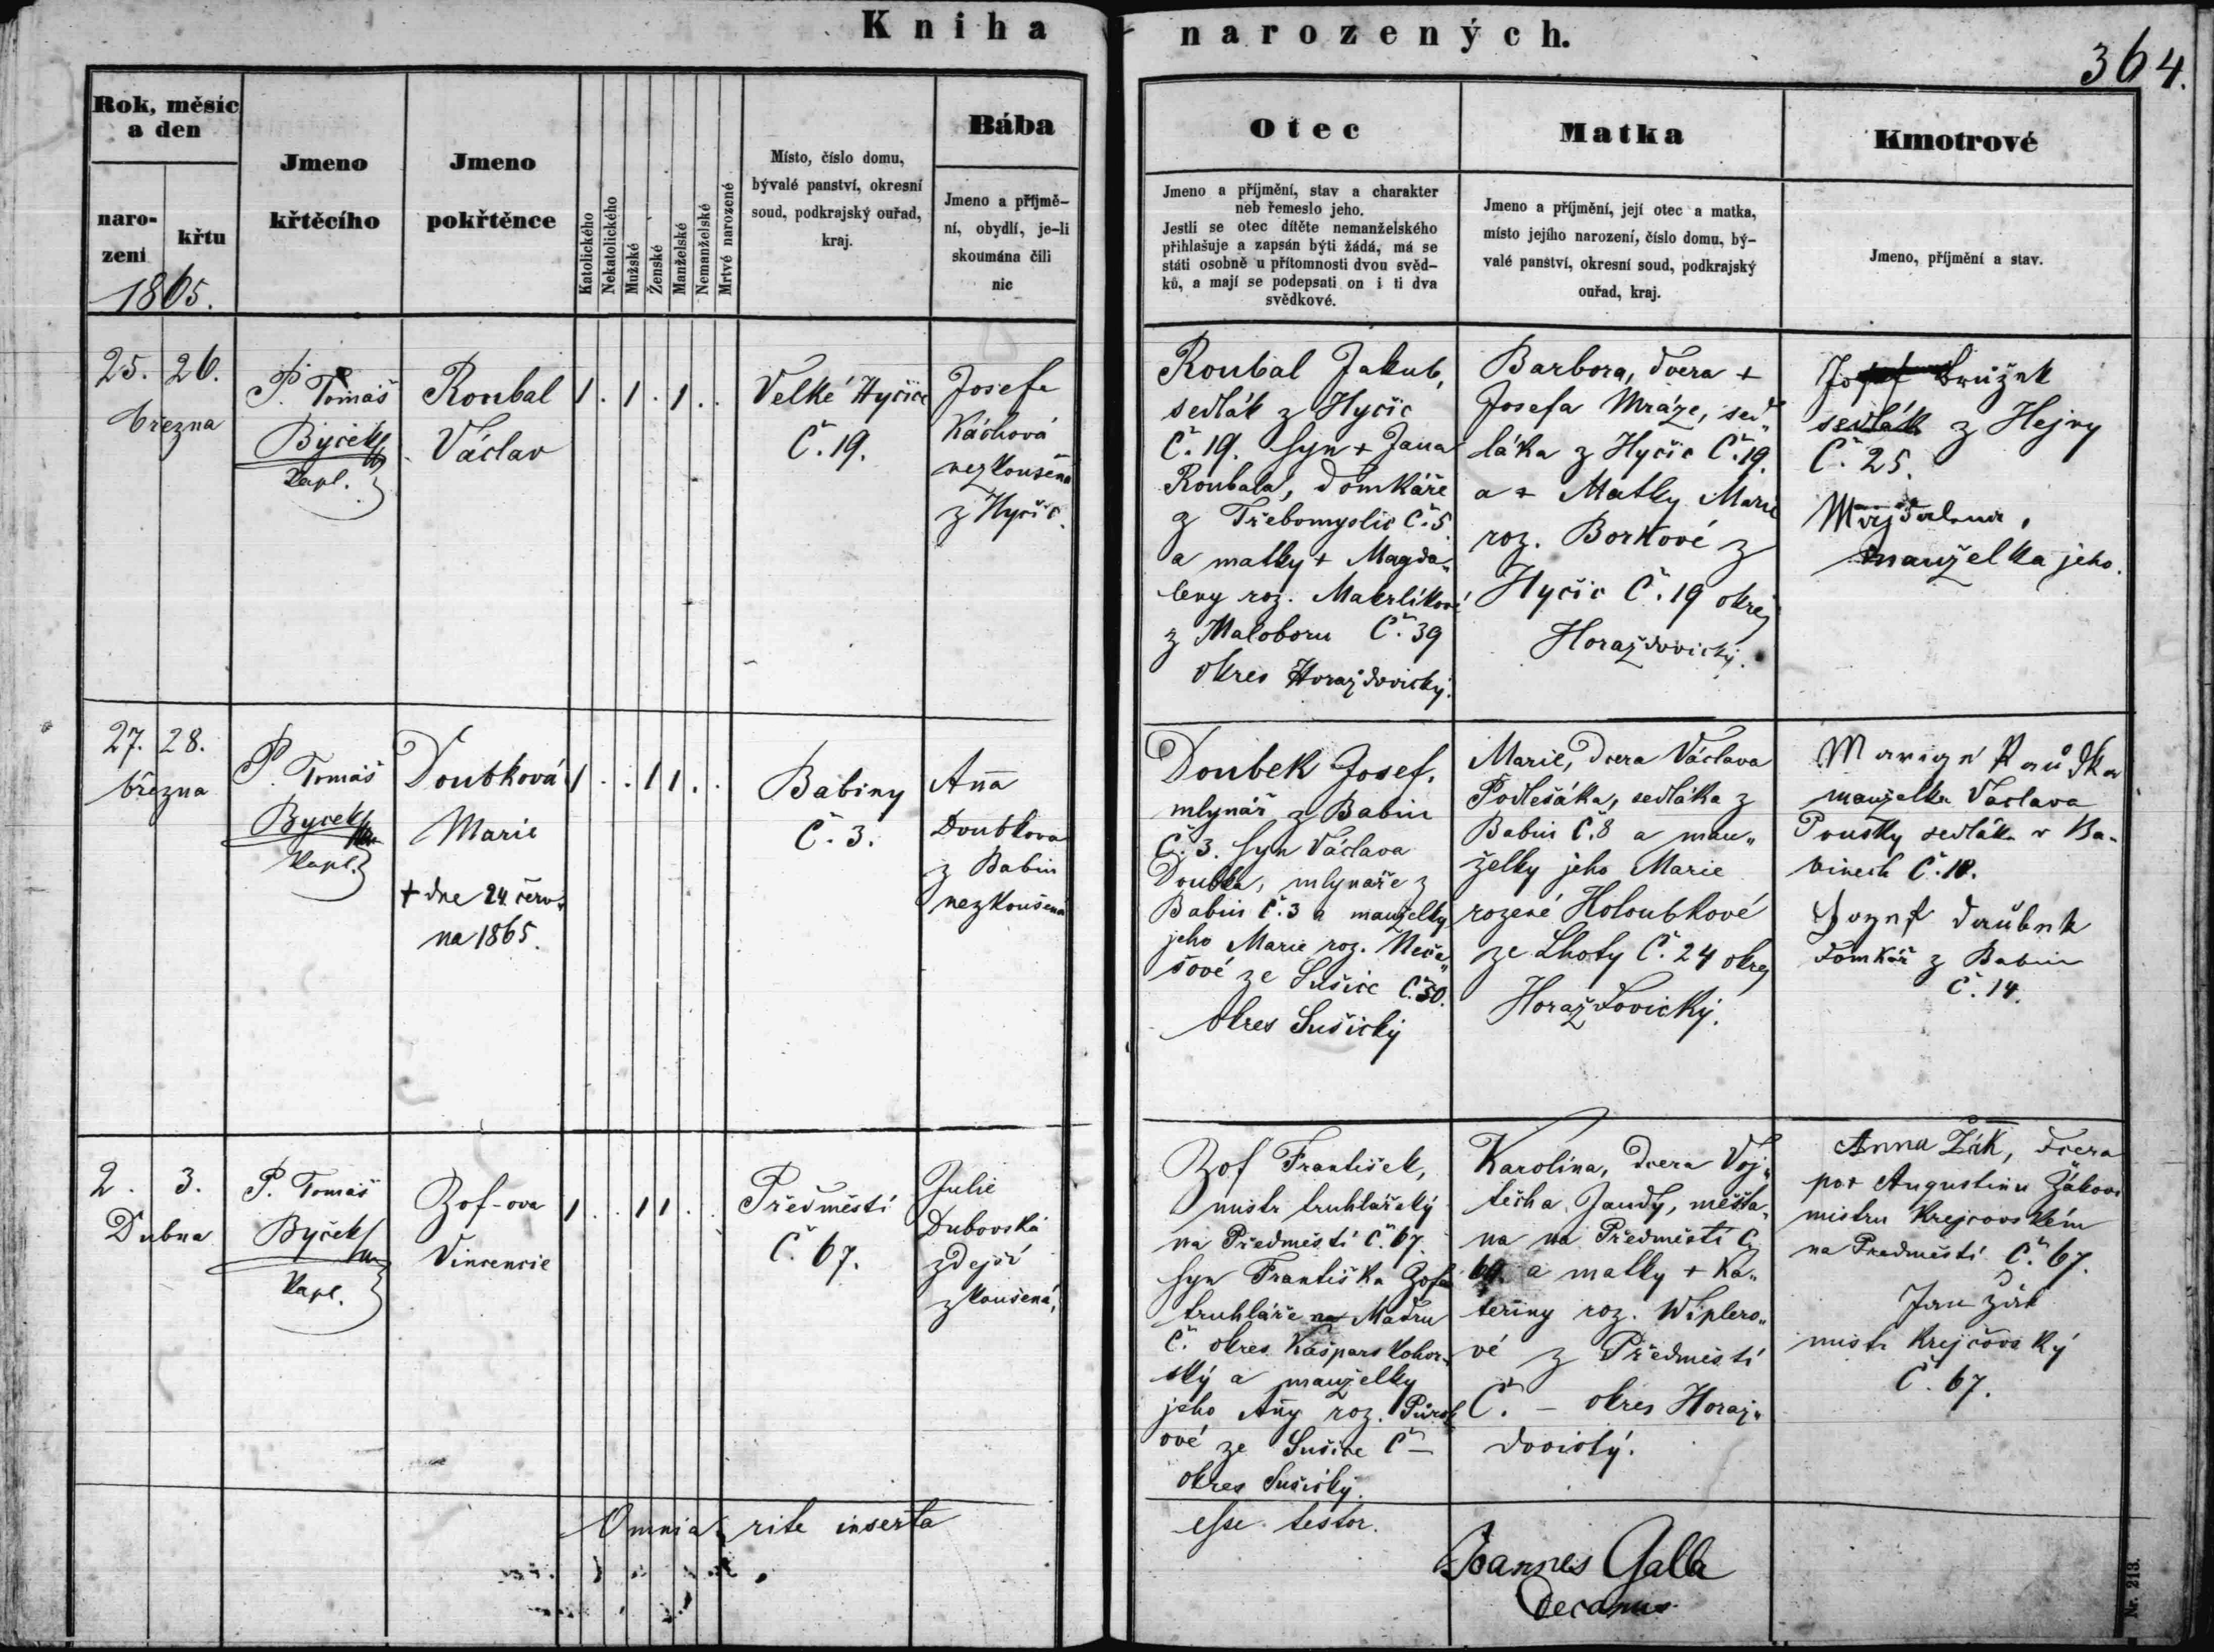 Kniha narozených.
364.
Rok, měsíc
a den
naro-
zení
křtu
1865.
Jmeno
křtěcího
Jmeno
pokřtěnce
Katolického
Nekatolického
Mužské
Ženské
Manželské
Nemanželské
Mrtvě narozené
Místo, číslo domu,
bývalé panství, okresní
soud, podkrajský ouřad,
kraj.
Bába
Jmeno a příjmě-
ní, obydlí, je-li
skoumána čili
nic
Otec
Jmeno a příjmění, stav a charakter
neb řemeslo jeho.
Jestli se otec dítěte nemanželského
přihlašuje a zapsán býti žádá, má se
státi osobně u přítomnosti dvou svěd-
ků, a mají se podepsati on i ti dva
svědkové.
Matka
Jmeno a příjmění, její otec a matka,
místo jejího narození, číslo domu, bý-
valé panství, okresní soud, podkrajský
ouřad, kraj.
Kmotrové
Jmeno, příjmění a stav.
25. 26.
března
P. Tomáš
Býček
Kapl.
Roubal
Václav
1 . 1 . 1 . .
Velké Hyčice
Č. 19.
Josefa
Káchová
nezkoušená
z Hyčic.
Roubal Jakub,
sedlák z Hyčic
Č. 19. syn + Jana
Roubala, domkáře
z Třebomyslic Č. 5
a matky + Magda„
leny roz. Makrlíkové
z Maloboru Č. 39
okres Horažďovický.
Barbora, dcera +
Josefa Mráze, sed„
láka z Hyčic Č. 19.
a + Matky Marie
roz. Borkové z
Hyčic Č. 19 okres
Horažďovický.
Josef
sedlák z Hejny
Č. 25.
Majdalena,
manželka jeho.
27. 28.
března
P. Tomáš
Bycek
Kapl.
Doubková
Marie
+ dne 24. červ„
na 1865.
1 . . 1 1 . .
Babiny
Č. 3.
Anna
Doubkova
z Babin
nezkoušená
Doubek Josef,
mlynář z Babin
Č. 3. syn Václava
Doubka, mlynaře z
Babin Č. 3 a manželky
jeho Marie roz. Neča„
sové ze Sušice Č. 50.
okres Sušický
Marie, dcera Václava
Podlešáka, sedláka z
Babin Č. 8 a man„
želky jeho Marie
rozené Holoubkové
ze Lhoty Č. 24 okres
Horažďovický.
manželka Vaclava
Pousky sedláka v Ba-
binech Č. 18.
domkář z Babin
Č. 14.
2. 3.
Dubna
P. Tomáš
Býček
Kapl.
Zof-ova
Vincencie
1 . . 1 1 . .
Předměstí
Č. 67.
Julie
Dubovská
zdejší
zkoušená,
Zof František,
mistr truhlářský
na Předměstí Č. 67.
syn Františka Zofa
truhláře na Madru
Č. okres Kašparskohor„
ský a manželky
jeho Anny roz.
ové ze Sušice Č –
okres Sušický.
Karolina, dcera Voj„
těcha Jandy, měšťa„
na na Předměstí Č.
a matky + Ka„
teřiny roz. Wiplero„
vé z Předměstí
Č. – okres Horaž„
dovický.
Anna Žák, dcera
po + Augustinu Žákovi
mistru krejčovském
na Předměstí Č. 67.
Jan Žák
mistr krejčovský
Č. 67.
Omnia rite inserta
esse testor.
Joannes Galla
Decanus
Nr. 213.